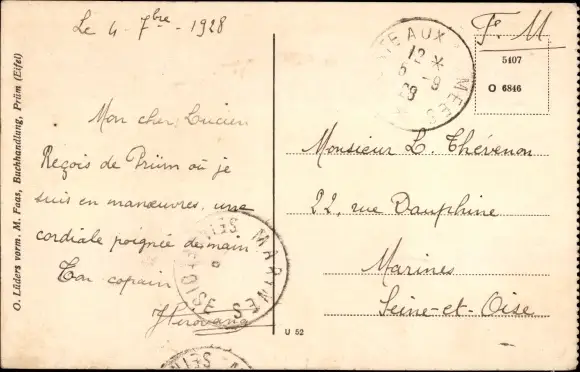 Le 4 - 7bre - 1928
Mon cher Lucien
Reçois de Prüm où je
suis en manœuvres, une
cordiale poignée de main
Ton copain
O. Lüders vorm. M. Faas, Buchhandlung, Prüm (Eifel)
U 52
F. M
5407
O 6846
12 *
5 - 9
28
Monsieur L. Thévenon
22, rue Dauphine
Marines
Seine-et-Oise
MARINES